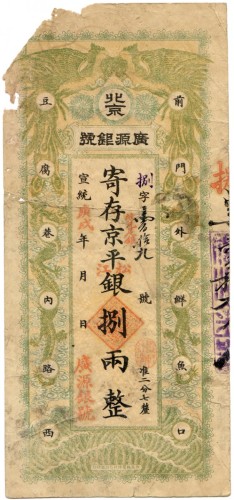 北京
廣源銀號
前門外鮮魚口
捌字 號
寄存京平銀捌兩整
宣統 年 月 日
庚戌
松江
准二分七釐
廣源銀號
豆腐巷內路西